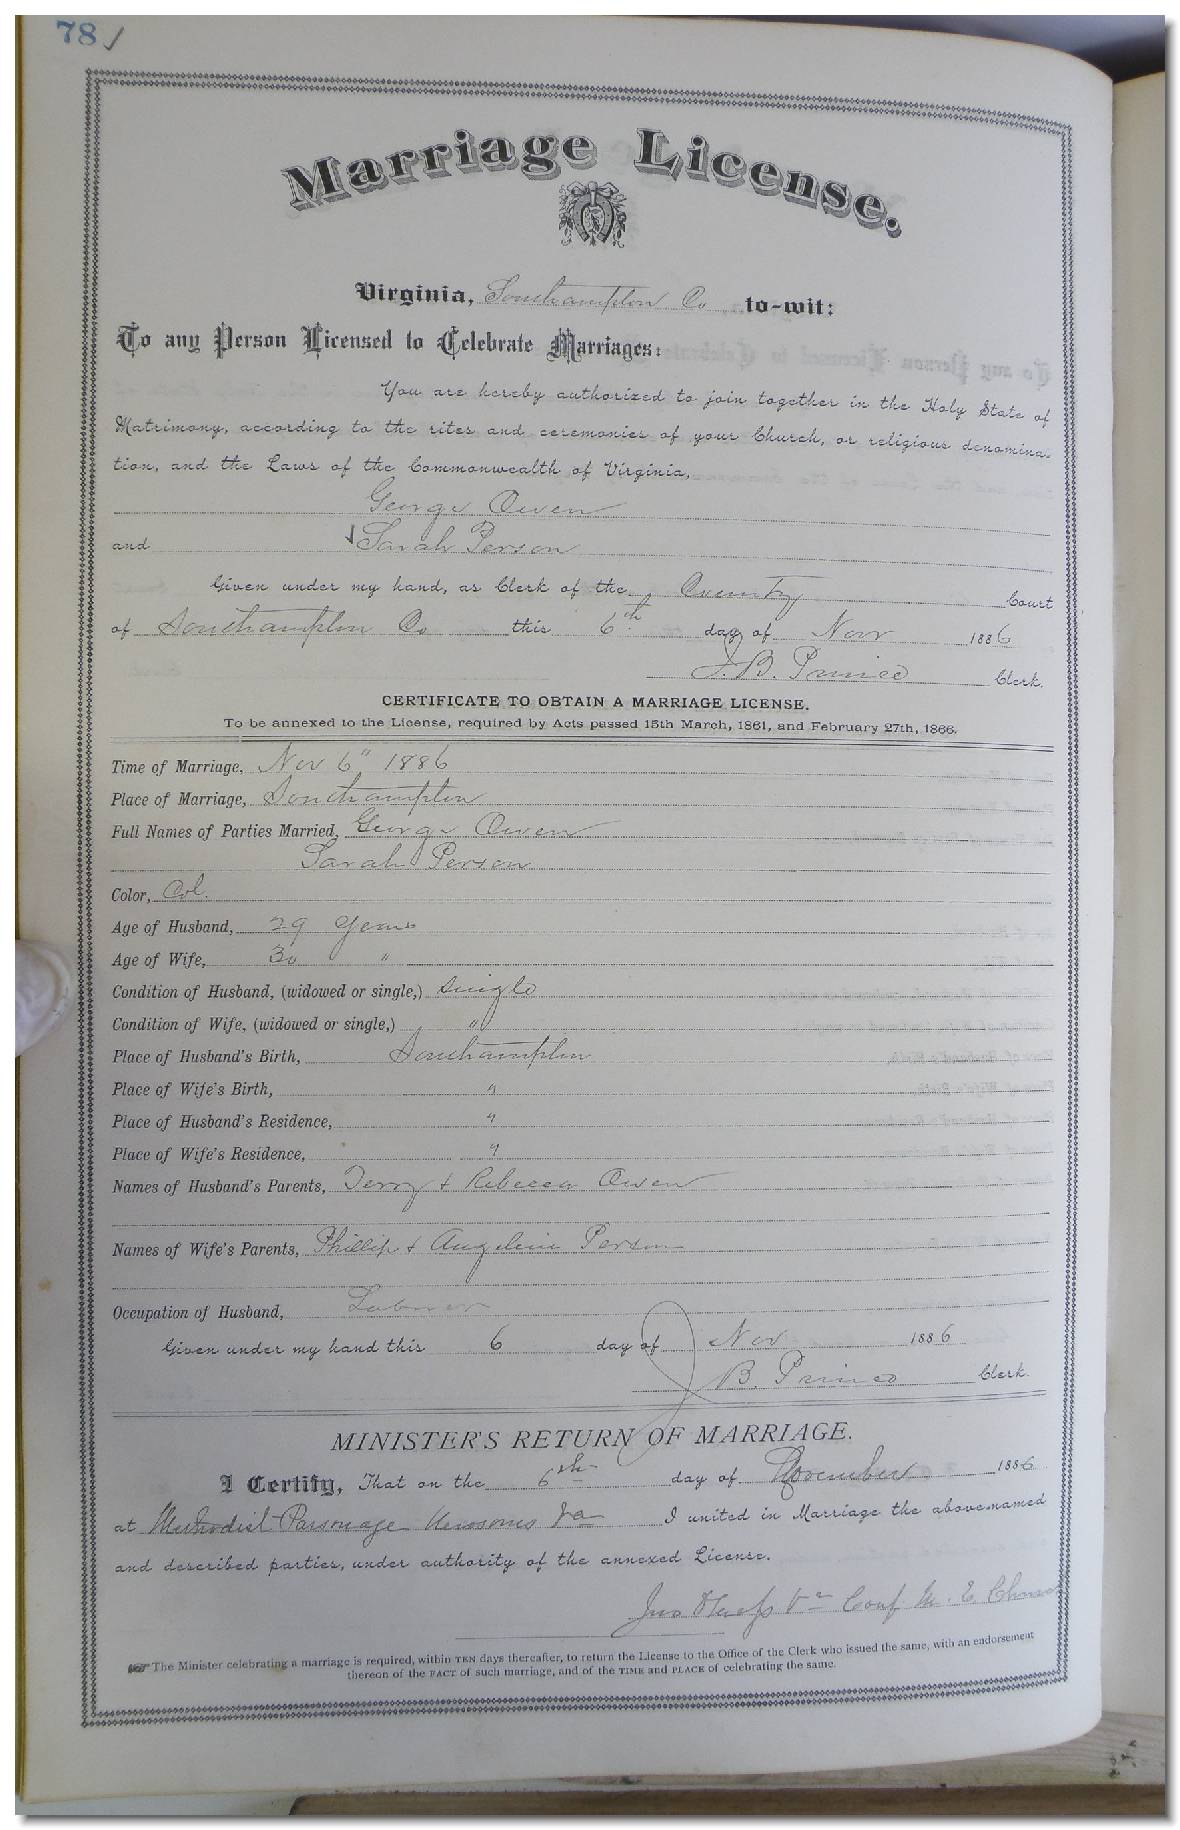 78
Marriage License.
Virginia, Southampton Co to-wit:
To any Person Licensed to Celebrate Marriages:
You are hereby authorized to join together in the Holy State of
Matrimony, according to the rites and ceremonies of your Church, or religious denomina-
tion, and the Laws of the Commonwealth of Virginia,
George Owen
and Sarah Person
Given under my hand, as Clerk of the County Court
of Southampton Co this 6th day of Novr 1886
J. B. Prince Clerk.
CERTIFICATE TO OBTAIN A MARRIAGE LICENSE.
To be annexed to the License, required by Acts passed 15th March, 1861, and February 27th, 1866.
Time of Marriage, Nov 6" 1886
Place of Marriage, Southampton
Full Names of Parties Married, George Owen
Sarah Person
Color, Col.
Age of Husband, 29 years
Age of Wife, 30 "
Condition of Husband, (widowed or single,) Single
Condition of Wife, (widowed or single,) "
Place of Husband's Birth, Southampton
Place of Wife's Birth, "
Place of Husband's Residence, "
Place of Wife's Residence, "
Names of Husband's Parents, Jerry + Rebecca Owen
Names of Wife's Parents, Phillip + Angeline Person
Occupation of Husband, Laborer
Given under my hand this 6 day of Nov 1886
J B. Prince Clerk.
MINISTER'S RETURN OF MARRIAGE.
I Certify, That on the 6th day of November 1886
at Methodist Parsonage Newsoms Va I united in Marriage the above-named
and described parties, under authority of the annexed License.
Jno Va Conf M. E. Church
The Minister celebrating a marriage is required, within TEN days thereafter, to return the License to the Office of the Clerk who issued the same, with an endorsement
thereon of the FACT of such marriage, and of the TIME and PLACE of celebrating the same.